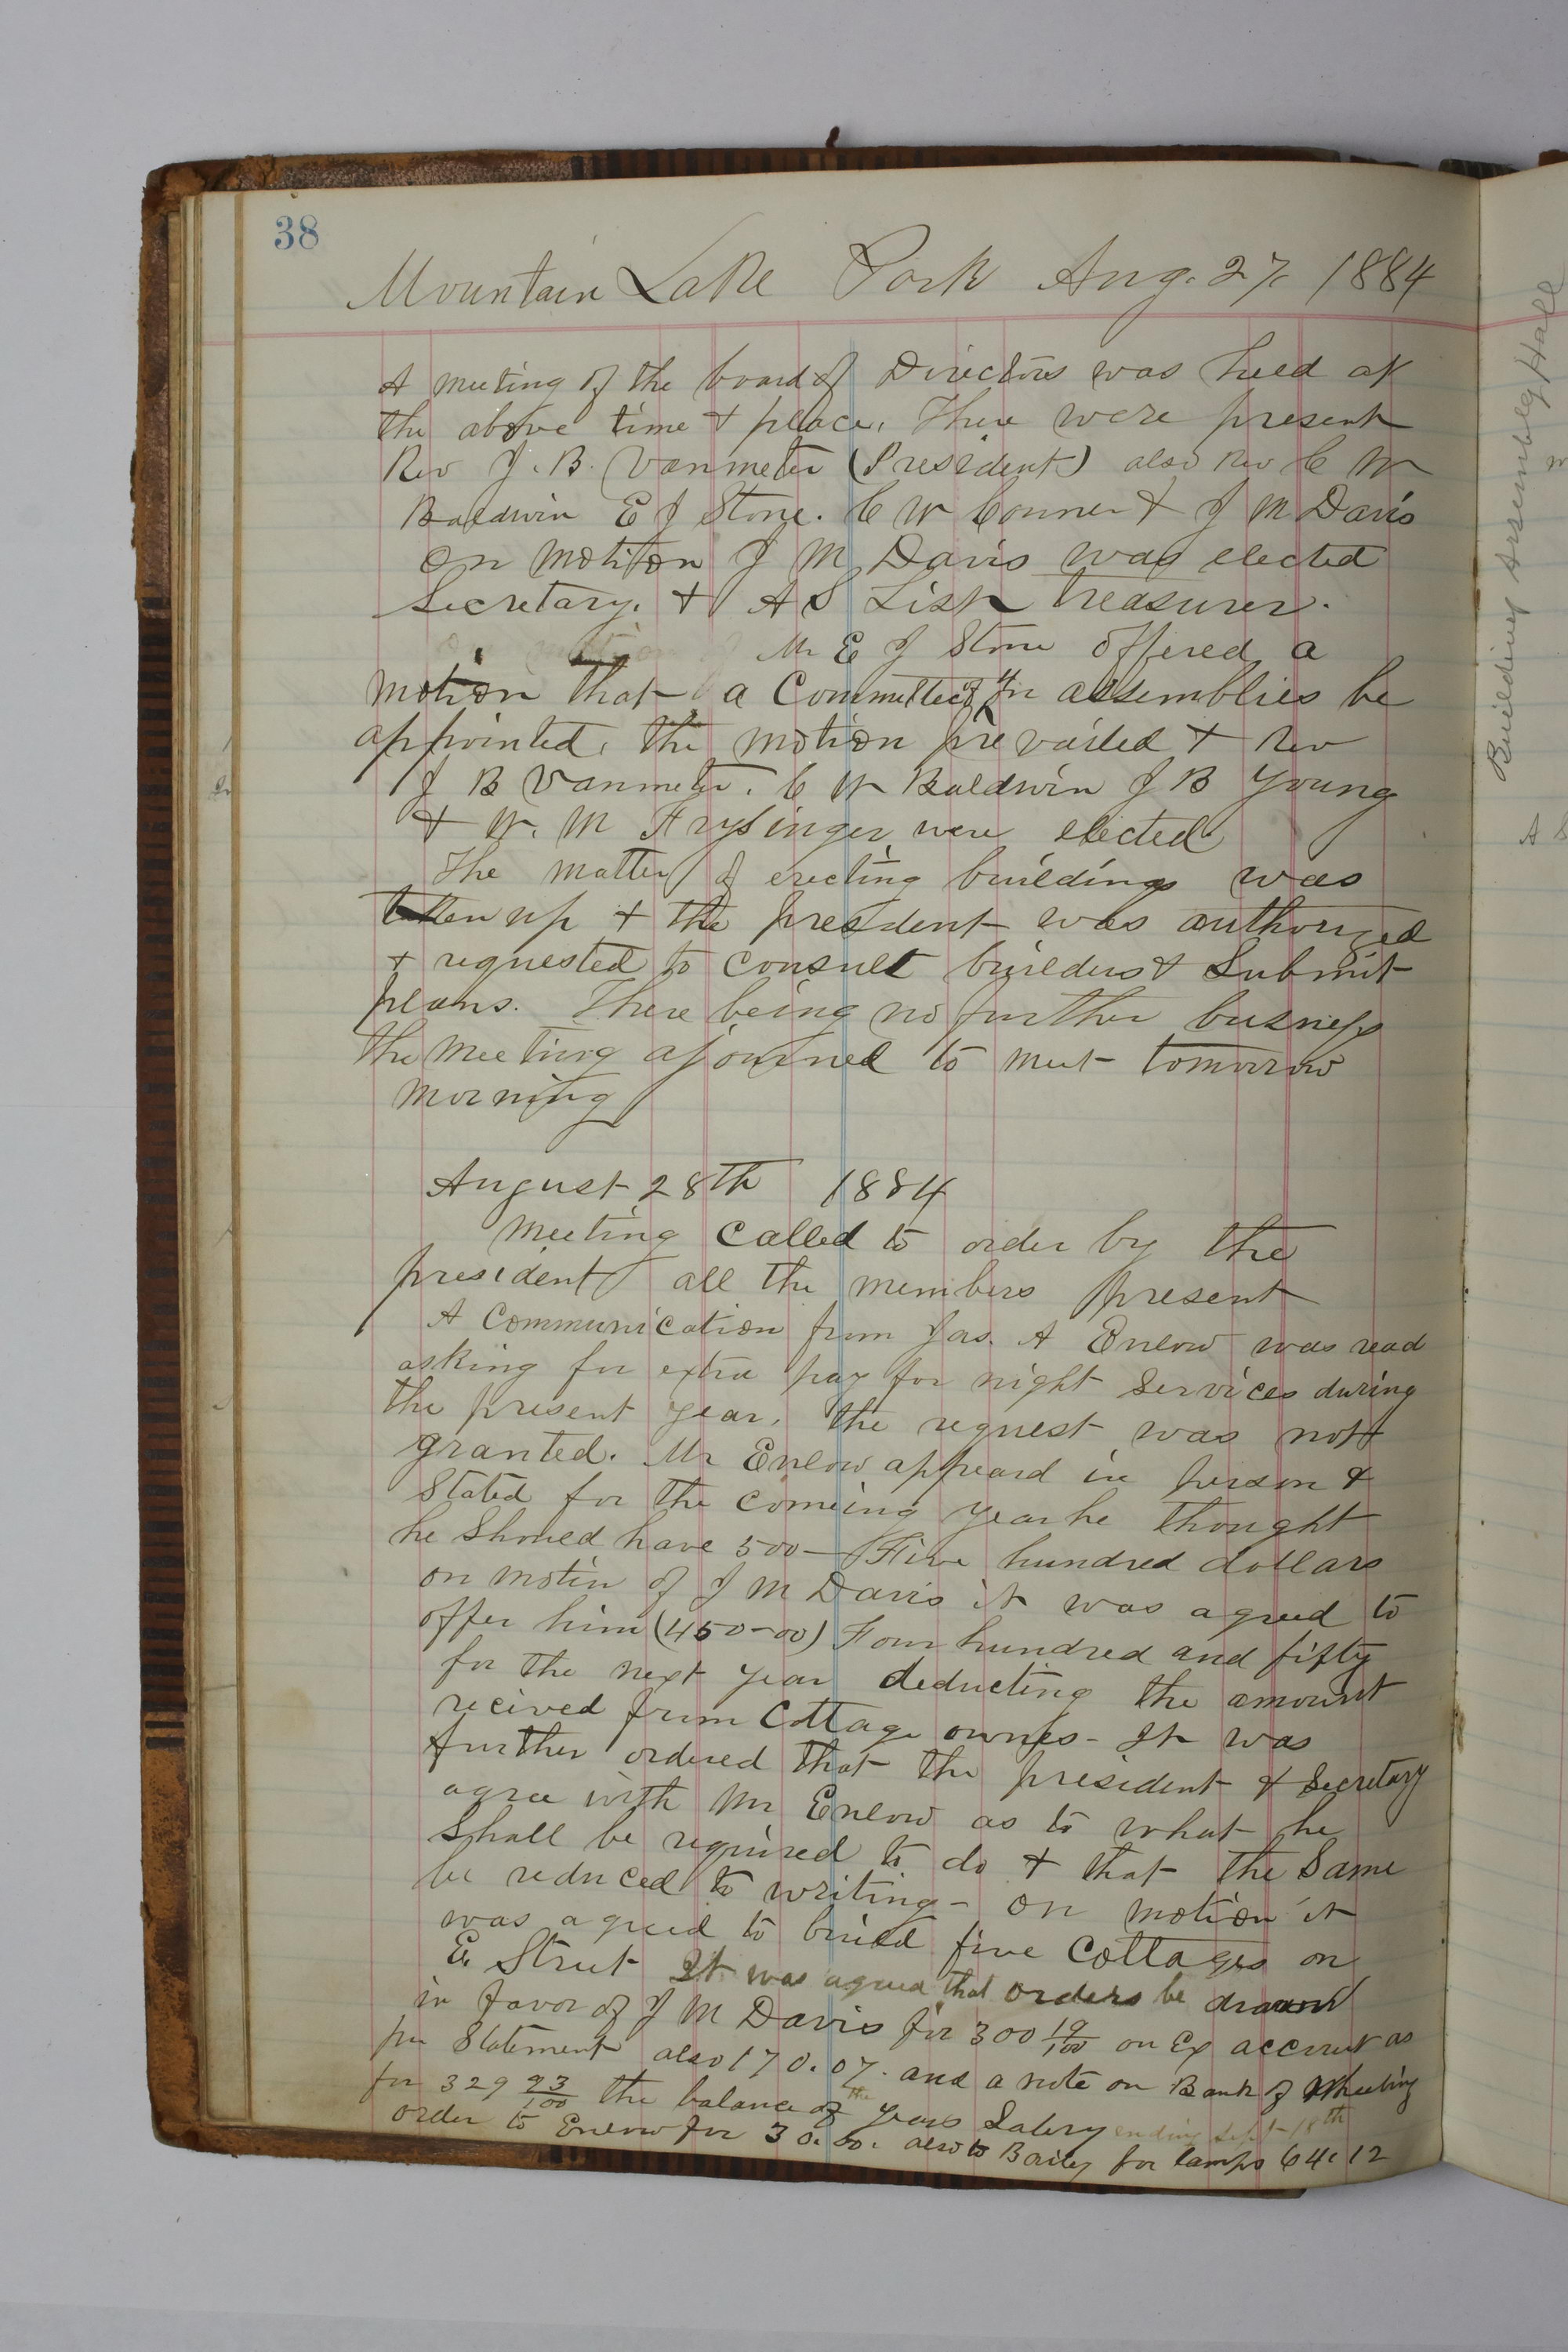 38
Mountain Lake Park Aug. 27. 1884
A meeting of the board of Directors was held at
the above time & place. There were present
Rev J. B. Vanmeter (President) also Rev C W
Baldwin E J Stone. C W Conner & J M Davis
On motion J M Davis was elected
Secretary. & A S List treasurer.
on motion Mr E J Stone offered a
motion that a Committee of 4 on assemblies be
appointed. the motion prevailed & Rev
J B Vanmeter. C W Baldwin J B Young
& W. M Frysinger were elected
The matter of erecting buildings was
taken up & the president was authorized
& requested to consult builders & Submit
plans. There being no further business
the meeting ajourned to meet tomorrow
morning
August 28th 1884
Meeting Called to order by the
president all the members present
A Communication from Jas. A Enlow was read
asking for extra pay for night Services during
the present year. the request was not
granted. Mr Enlow appeard in person &
Stated for the comeing year he thought
he Should have 500— Five hundred dollars
on motin of J M Davis it was agreed to
offer him (450-00) Four hundred and fifty
for the next year deducting the amount
recived from Cottage owners - It was
further ordered that the president & Secretary
agree with Mr Enlow as to what he
Shall be required to do & that the Same
be reduced to writing - on motion it
was agreed to build five Cottages on
E. Street It was agreed that orders be drawn
in favor of J M Davis for 300 19/100 on Ex account as
per Statement also 170.07. and a note on Bank of Wheeling
for 329 93/100 the balance of the years Salery ending Sept 18th
order to Enlow for 30.00. also to Bailey for lamps 64.12
Building Assembly Hall